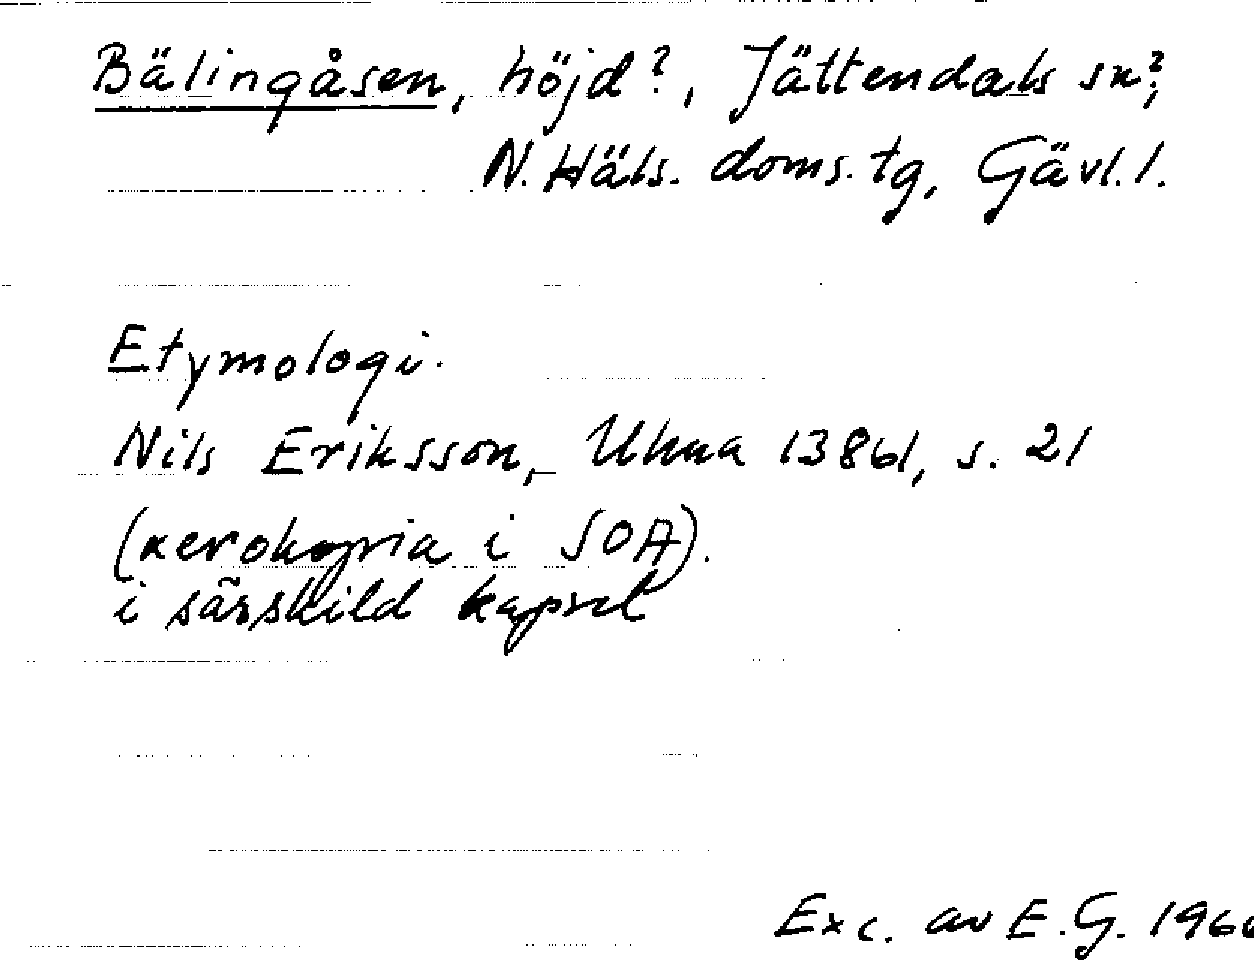 Bälingåsen, höjd?, Jättendals sn?,
N. Häls. doms. tg, Gävl. l.
Etymologi.
Nils Eriksson, Ulma 13861, s. 21
(xerokopia i SOA).
i särskild kapsel
Exc. av E. G.